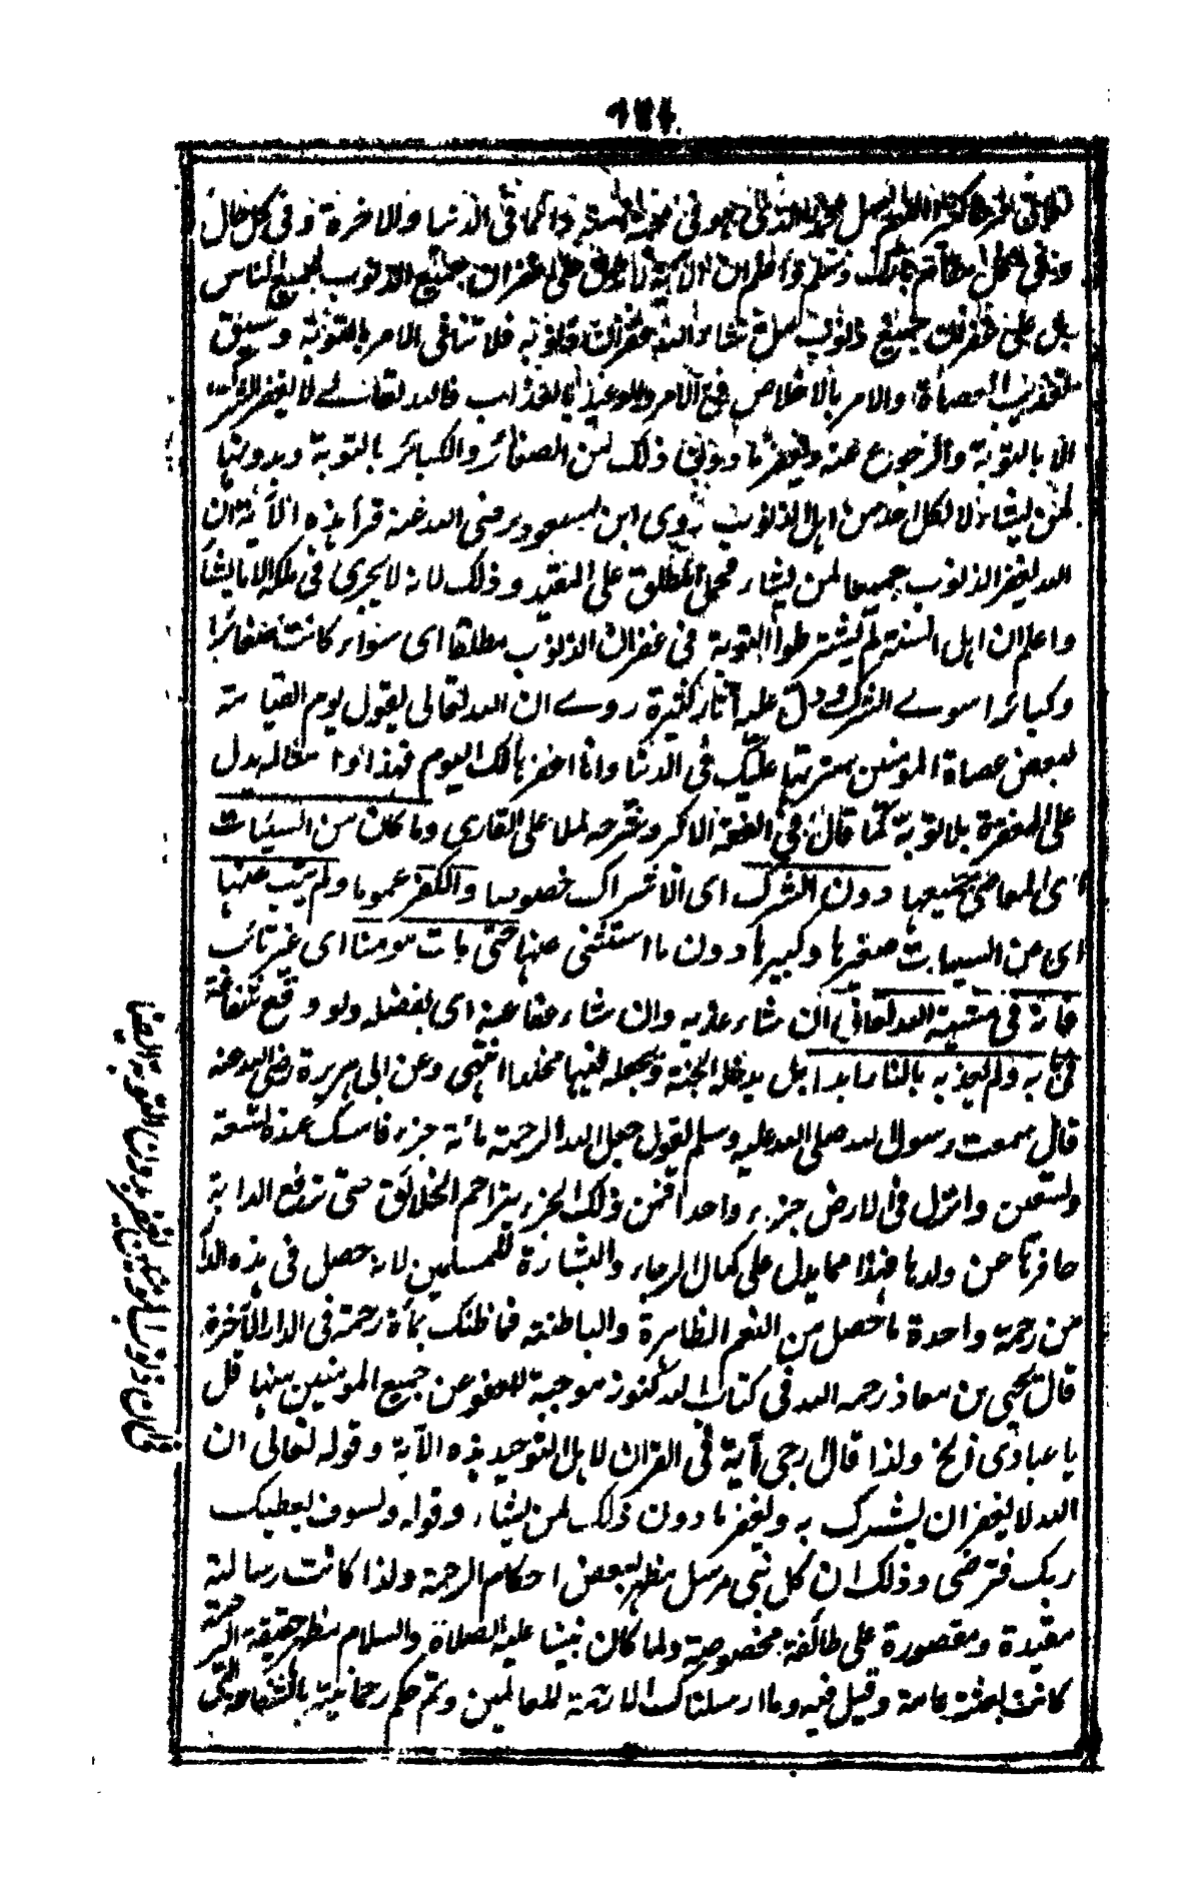 دائما فى الدنيا والاخرة وفى كل حال
وفى كل مقام وسلم واعلم ان الآية لا تدل على غفران جميع الذنوب لجميع الناس
بل على غفران جميع ذنوب من شاء الله غفران ذنوبه فلا تنافى الامر بالتوبة وسبق
تعذيب العصاة والامر بالاخلاص فى الامر والوعيد بالعذاب فالله تعالى لا يغفر الشرك
الا بالتوبة والرجوع عنه ويغفر ما دون ذلك من الصغائر والكبائر بالتوبة وبدونها
لمن يشاء لا لكل احد من اهل الذنوب روى ابن مسعود رضى الله عنه قرأ هذه الآية ان
الله يغفر الذنوب جميعا لمن يشاء فحمل المطلق على المقيد وذلك لانه لا يجرى فى ملكه الا ما يشاء
واعلم ان اهل السنة لم يشترطوا التوبة فى غفران الذنوب مطلقا اى سواء كانت صغائرا
وكبائرا سوے الشرك ودل عليه آثار كثيرة روے ان الله تعالى يقول يوم القيامة
لبعض عصاة المؤمنين سترتها عليك فى الدنيا وانا اغفرها لك اليوم فهذا وامثاله يدل
على المغفرة بلا توبة كما قال فى الفقه الاكبر وشرحه لملا على القارى وما كان من السيئات
اى المعاصى جميعها دون الشرك اى الاشراك خصوصا والكفر عموما ولم يتب عنها
اى من السيات صغيرها وكبيرها دون ما استثنى منها حتى مات مومنا اى غير تائب
فانه فى مشية الله تعالى ان شاء عذبه وان شاء عفا عنه اى بفضله ولو وقع شفاعة
فى بابه ولم يعذبه بالنار ابدا بل يدخله الجنة ويجعله فيها مخلدا انتهى وعن ابى هريرة رضى الله عنه
قال سمعت رسول الله صلى الله عليه وسلم يقول جعل الله الرحمة مائة جزء فامسك عنده تسعة
وتسعين وانزل فى الارض جزء واحدا فمن ذلك الجزء يتراحم الخلائق حتى ترفع الدابة
حافرها عن ولدها فهذا مما يدل على كمال الرجاء والبشارة للمسلمين لانه حصل فى هذه الدار
من رحمة واحدة ما حصل من النعم الظاهرة والباطنة فما ظنك بمأة رحمة فى الدار الآخرة
قال يحيى بن معاذ رحمه الله فى كتاب الله كنوز موجبة للعفو عن جميع المومنين منها قل
يا عبادى الخ ولذا قال ارجى آية فى القران لاهل التوحيد هذه الآية وقوله تعالى ان
الله لا يغفر ان يشرك به ويغفر ما دون ذلك لمن يشاء وقوله ولسوف يعطيك
ربك فترضى وذلك ان كل نبى مرسل مظهر لبعض احكام الرحمة ولذا كانت رسالته
مقيدة ومقصورة على طائفة مخصوصة ولما كان نبينا عليه الصلاة والسلام مظهر حقيقة الرحمة
كانت بعثته عامة وقيل فيه وما ارسلناك الا رحمة للعالمين وتم حكم رحمانيته بالشفاعة التى